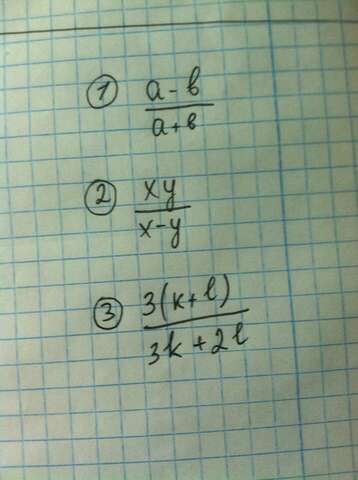 ① a-b
a+b
② xy
x-y
③ 3(k+l)
3k+2l